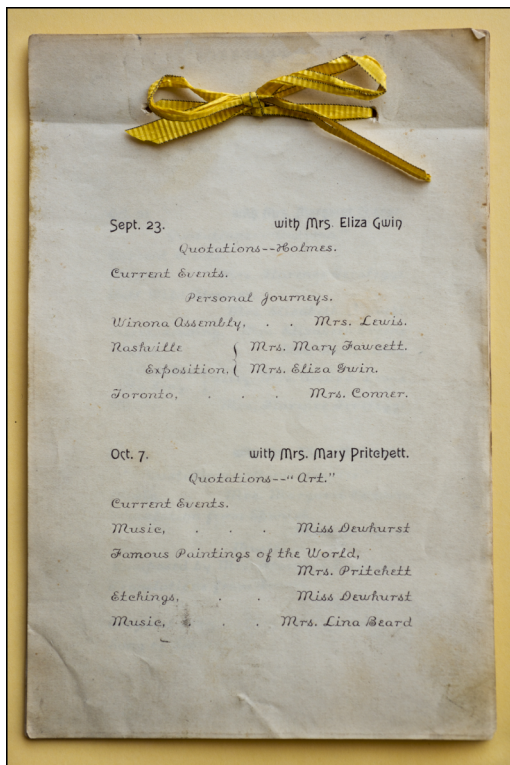 Sept. 23. with Mrs. Eliza Gwin
Quotations--Holmes.
Current Events.
Personal Journeys.
Winona Assembly, . . Mrs. Lewis.
Nashville { Mrs. Mary Fawcett.
Exposition, { Mrs. Eliza Gwin.
Toronto, . . . Mrs. Conner.
Oct. 7. with Mrs. Mary Pritchett.
Quotations--"Art."
Current Events.
Music, . . . Miss Dewhurst
Famous Paintings of the World,
Mrs. Pritchett
Etchings, . . Miss Dewhurst
Music, . . . Mrs. Lina Beard